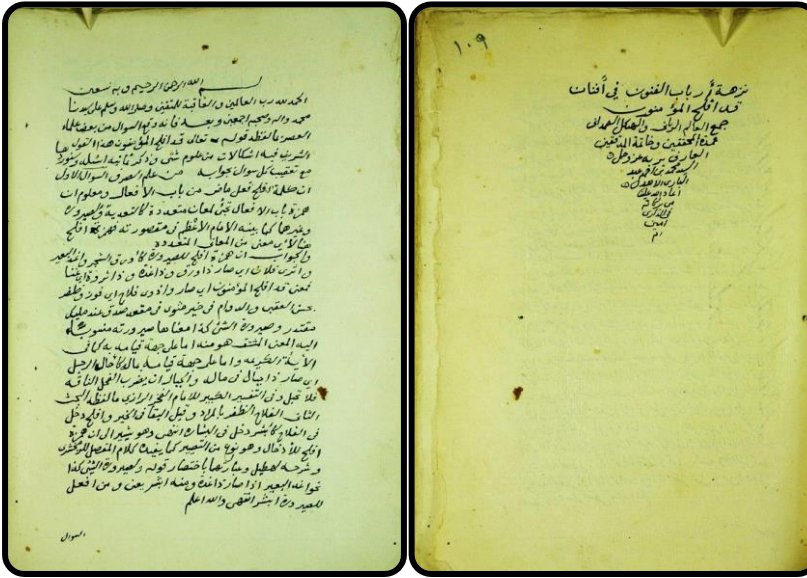 ١٠٩
نزهة أرباب الفنون في أفنان
قد افلح المؤمنون
جمع العالم الرباني والهيكل الصمداني
عمدة المحققين وخاتمة المدققين
العارف بربه عز وجل
السيد محمد بن أحمد عبد
الباري الاهدل
أعاد الله علينا
من بركاتهم
امين
ام
بسم الله الرحمن الرحيم وبه نستعين
الحمد لله رب العالمين والعاقبة للمتقين وصلى الله وسلم على سيدنا
محمد واله وصحبه اجمعين وبعد فانه وقع السوال من بعض علماء
العصر ما لفظه قوله تعالى قد افلح المؤمنون هذا القول
الشريف فيه اشكالات من علوم شتى وذكر ثمانية اسئلة
مع تعقيب كل سوال بجوابه من علم الصرف السوال الاول
ان كلمة افلح فعل ماض من باب الافعال ومعلوم ان
همزة باب الافعال تجئ لمعان متعددة كالتعدية والصيرورة
وغيرها كما بينه الامام الاعظم في مقصورته فهمزة افلح
هنا لأي معنى من المعاني المتعددة
والجواب ان همزة افلح للصيرورة كأورق الشجر واغد البعير
واثرى فلان اي صار ذا ورق وذا غدة وذا ثروة اي غنا
فمعنى قد افلح المؤمنون اي صاروا ذوي فلاح اي فوز وظفر
بحسن العقبى والدوام في خير مثوى في مقعد صدق عند مليك
مقتدر وصيرورة الشئ كذا معناها صيرورته منسوبا
اليه المعنى المشتق هو منه اما على جهة قيامه به كما في
الآية الكريمة واما على جهة قيامه بماله كأحال الرجل
اي صار ذا حيال في ماله والحيال ان يضرب الفحل الناقة
فلا تحبل وفي التفسير الكبير للامام الفخر الرازي ما لفظه البحث
الثاني الفلاح الظفر بالمراد وقيل البقاء في الخير وافلح دخل
في الفلاح كأبشر دخل في البشارة انتهى وهو يشير الى ان همزة
افلح للأدخال وهو نوع من التصيير كما يفيده كلام المفصل للزمخشري
وشرحه وعبارتهما باختصار قوله ولصيرورة الشئ كذا
نحو اغد البعير اذا صار ذا غدة ومنه ابشر يعني ومن افعل
للصيرورة ابشر انتهى والله اعلم
السوال